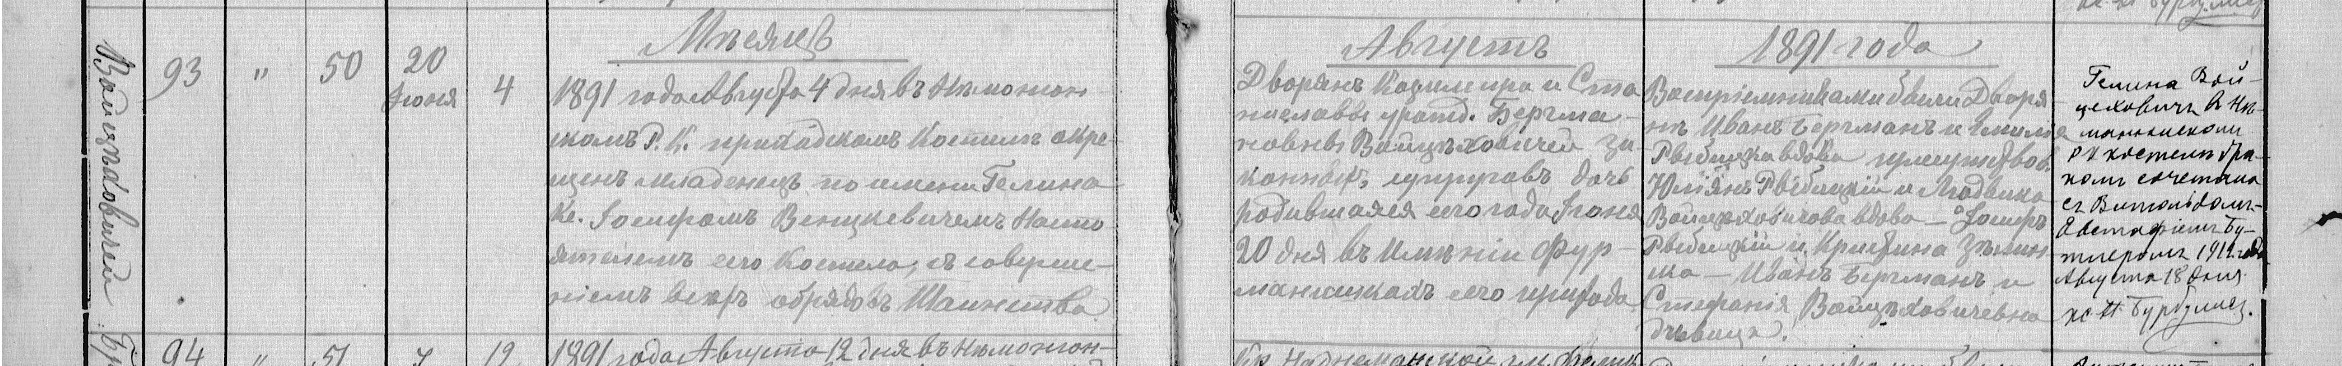 Мѣсяцъ
Августъ
1891 года
Войцѣховичей
93 " 50 20 Іюня 4
1891 года Августа 4 дня въ Нѣмонюн-
скомъ Р. К. приходскомъ Костелѣ окре-
щенъ младенецъ по имени Гелина
Кс. Іосифомъ Венцкевичемъ Насто-
ятелемъ сего Костела, съ соверше-
ніемъ всѣхъ обрядовъ Таинства.
Дворянъ Казимира и Ста-
ниславы урожд. Бергма-
новны Войцѣховичей за-
конныхъ супруговъ дочь
родившаяся сего года Іюня
20 дня въ Имѣніи Фур-
манишкахъ сего прихода.
Воспріемниками были Дворя-
нѣ Иванъ Бергманъ и Емилія
Рвбицка вдова присутствов.
Юліянъ Рвбицкій и Людвика
Войцѣховичова вдова — Іосифъ
Рвбицкій и Кристина
Иванъ Бергманъ и
Стефанія Войцѣховичевна
дѣвица.
Гелина Вой-
цеховичъ въ Нѣ-
монюнскомъ
рк костелѣ бра-
комъ сочетана
съ Витольдомъ-
Евстафіемъ Бу-
тлеромъ 1912 года
Августа 18 дня
кс. Бурбулисъ.
94 " 51 7 12 1891 года Августа 12 дня въ Нѣмонюн-